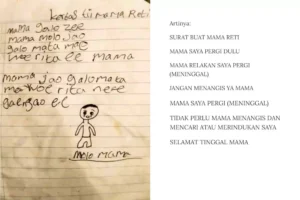 kertas tii mama Reti
mama galo zee
mama molo Jao
galo mata mae
mama
mama jao galo mata
mae
molo mama
Artinya:
SURAT BUAT MAMA RETI
MAMA SAYA PERGI DULU
MAMA RELAKAN SAYA PERGI
(MENINGGAL)
JANGAN MENANGIS YA MAMA
MAMA SAYA PERGI (MENINGGAL)
TIDAK PERLU MAMA MENANGIS DAN
MENCARI ATAU MERINDUKAN SAYA
SELAMAT TINGGAL MAMA